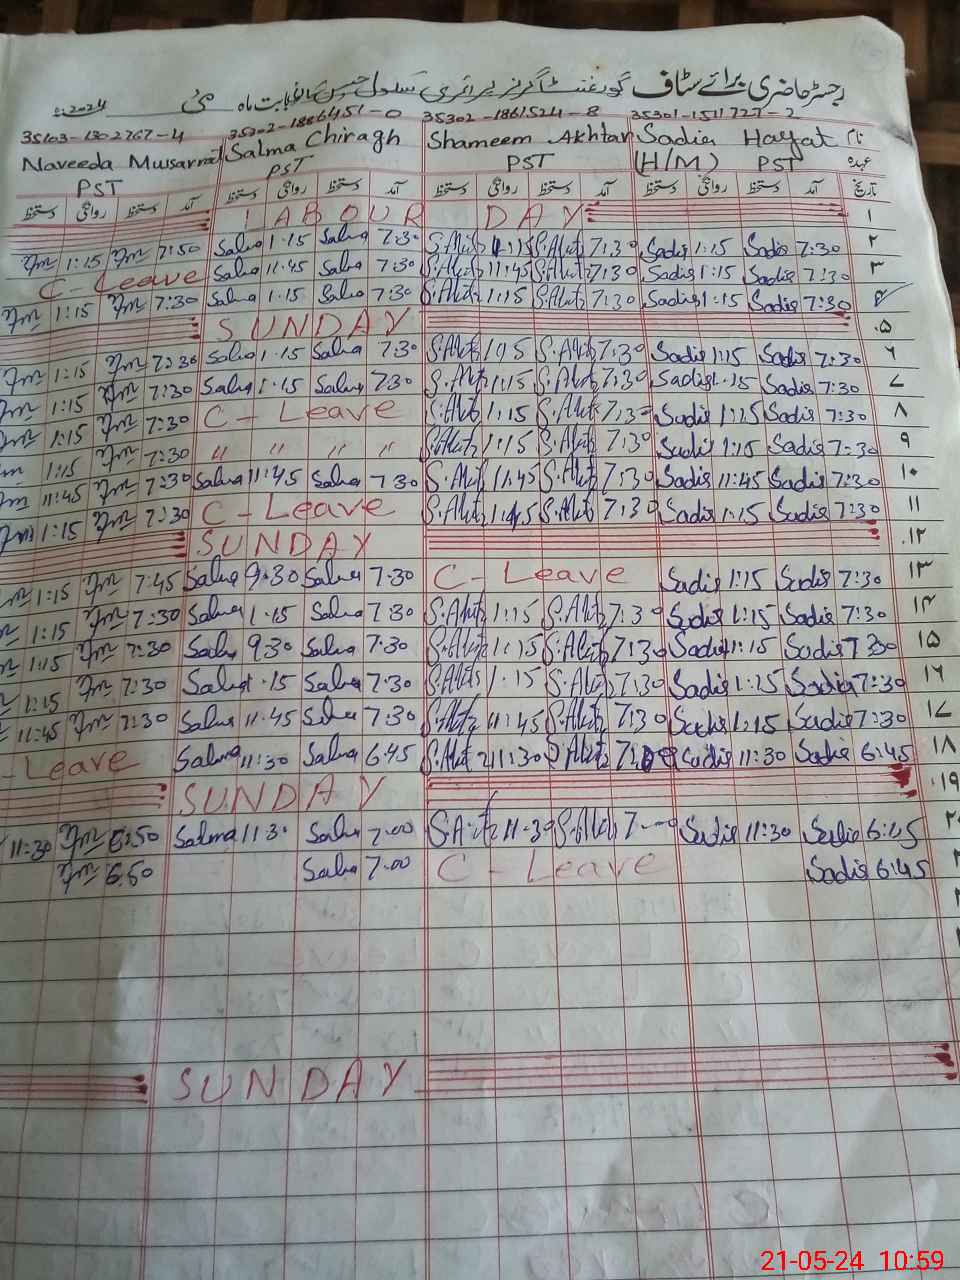 رجسٹر حاضری برائے سٹاف گورنمنٹ گرلز پرائمری سکول بابت ماہ مئی 2024ء
35103-1302767-4 35302-1886451-0 35302-1861524-8 35301-1511727-2
Naveeda Musarrat Salma Chiragh Shameem Akhtar Sadia Hayat نام
PST PST PST (H/M) PST عہدہ
دستخط روانگی دستخط آمد دستخط روانگی دستخط آمد دستخط روانگی دستخط آمد دستخط روانگی دستخط آمد تاریخ
LABOUR DAY ۱
1:15 7:50 Salma 1:15 Salma 7:30 S.Akhtar 1:15 S.Akhtar 7:30 Sadia 1:15 Sadia 7:30 ۲
C-Leave Salma 11:45 Salma 7:30 S.Akhtar 11:45 S.Akhtar 7:30 Sadia 1:15 Sadia 7:30 ۳
1:15 7:30 Salma 1:15 Salma 7:30 S.Akhtar 1:15 S.Akhtar 7:30 Sadia 1:15 Sadia 7:30 ۴
SUNDAY ۵
1:15 7:30 Salma 1:15 Salma 7:30 S.Akhtar 1:15 S.Akhtar 7:30 Sadia 1:15 Sadia 7:30 ۶
1:15 7:30 Salma 1:15 Salma 7:30 S.Akhtar 1:15 S.Akhtar 7:30 Sadia 1:15 Sadia 7:30 ۷
1:15 7:30 C-Leave S.Akhtar 1:15 S.Akhtar 7:30 Sadia 1:15 Sadia 7:30 ۸
1:15 7:30 " " " " S.Akhtar 1:15 S.Akhtar 7:30 Sadia 1:15 Sadia 7:30 ۹
11:45 7:30 Salma 11:45 Salma 7:30 S.Akhtar 11:45 S.Akhtar 7:30 Sadia 11:45 Sadia 7:30 ۱۰
1:15 7:30 C-Leave S.Akhtar S.Akhtar 7:30 Sadia 1:15 Sadia 7:30 ۱۱
SUNDAY ۱۲
1:15 7:45 Salma 9:30 Salma 7:30 C-Leave Sadia 1:15 Sadia 7:30 ۱۳
1:15 7:30 Salma 1:15 Salma 7:30 S.Akhtar 1:15 S.Akhtar 7:30 Sadia 1:15 Sadia 7:30 ۱۴
1:15 7:30 Salma 9:30 Salma 7:30 S.Akhtar 1:15 S.Akhtar 7:30 Sadia 1:15 Sadia 7:30 ۱۵
1:15 7:30 Salma 1:15 Salma 7:30 S.Akhtar 1:15 S.Akhtar 7:30 Sadia 1:15 Sadia 7:30 ۱۶
11:45 7:30 Salma 11:45 Salma 7:30 S.Akhtar 11:45 S.Akhtar 7:30 Sadia 1:15 Sadia 7:30 ۱۷
-Leave Salma 11:30 Salma 6:45 S.Akhtar 11:30 S.Akhtar Sadia 11:30 Sadia 6:45 ۱۸
SUNDAY ۱۹
11:30 6:50 Salma 11:30 Salma 7:00 S.Akhtar 11:30 S.Akhtar 7:00 Sadia 11:30 Sadia 6:45
6:50 Salma 7:00 C-Leave Sadia 6:45
SUNDAY
21-05-24 10:59